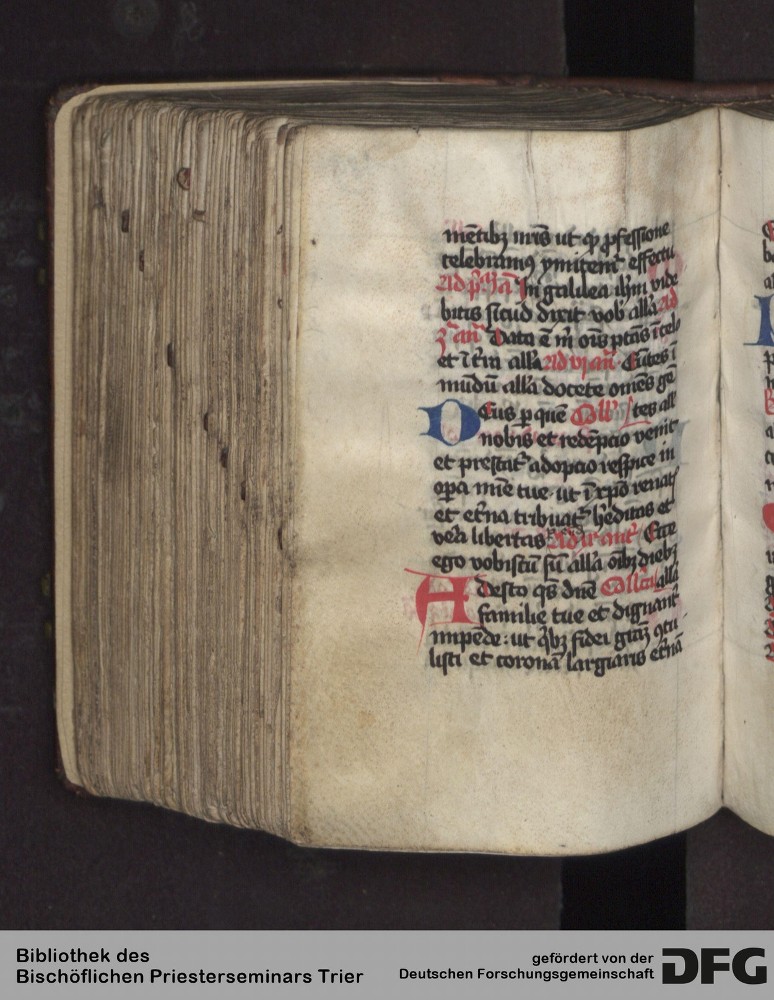 mētibꝫ nr̄is ut qͦ ꝓfessione
celebramꝰ ymitemᷓ effectu
Ad pͥmā In galilea ihm̄ vide
bitis sicud dixit vob̄ all̄a Ad
3ᷓ an̄ Data ē m̄ om̄s ptās ī celo
et ī t̄ra all̄a Ad vi an̄ Eūtes ī
mūdū all̄a docete om̄es gē
Deus ꝑ quē Coll̄ tes all̄
nobis et redēpcio venit
et prestatᷓ adopcio respice in
oꝑa mi̅e tue · ut ī xpō renatꝭ
et et̄na tribuatᷓ hęditas et
vera libertas Ad ix ant̄ Ecce
ego vobiscū sū all̄a oīb̄ꝫ diebꝫ
Adesto qs̄ dn̄e Coll̄cta all̄a
familie tue et dignantᷓ
impēde : ut qͥbꝫ fidei grāꝫ ꝯtu
listi et coronā largiaris et̄nā
Bibliothek des
Bischöflichen Priesterseminars Trier
gefördert von der
Deutschen Forschungsgemeinschaft
DFG